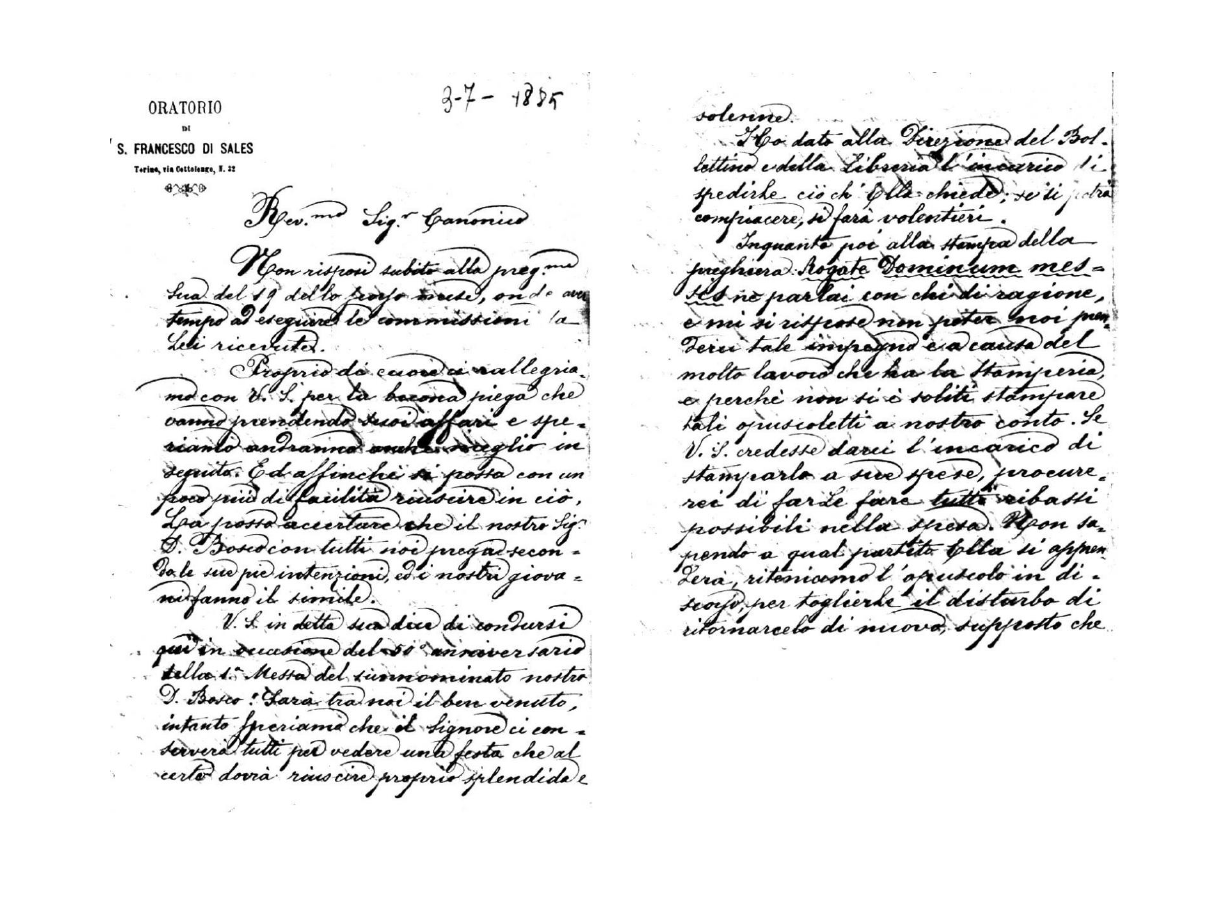 3-7- 1885
ORATORIO
DI
S. FRANCESCO DI SALES
Torino, via Cottolengo, N. 32
Rev.mo Sig.r Canonico
Non risposi subito alla preg.ma
Sua del 19 dello scorso mese, onde aver
tempo ad eseguire le commissioni da
Lei ricevute.
Proprio di cuore ci rallegria-
mo con V. S. per la buona piega che
vanno prendendo suoi affari e spe-
riamo andranno anche meglio in
seguito. Ed affinchè si possa con un
poco più di facilità riuscire in ciò,
La posso accertare che il nostro Sig.r
D. Bosco con tutti noi prega secon-
do le sue pie intenzioni, ed i nostri giova-
ni fanno il simile.
V. S. in detta sua dice di condursi
qui in occasione del 50° anniversario
della 1.a Messa del sunnominato nostro
D. Bosco: Sarà tra noi il ben venuto,
intanto speriamo che il Signore ci con-
serverà tutti per vedere una festa che al
certo dovrà riuscire proprio splendida e
solenne.
Ho dato alla Direzione del Bol-
lettino e della Libreria l'incarico di
spedirle ciò ch'Ella chiede; se si potrà
compiacere, si farà volentieri.
Inquanto poi alla stampa della
preghiera Rogate Dominum mes-
sis ne parlai con chi di ragione,
e mi si rispose non poter noi pren-
derci tale impegno e a causa del
molto lavoro che ha la stamperia,
e perchè non si è soliti stampare
tali opuscoletti a nostro conto. Se
V. S. credesse darci l'incarico di
stamparlo a sue spese, procure-
rei di farLe fare tutti i ribassi
possibili nella spesa. Non sa-
pendo a qual partito Ella si appren-
derà, riteniamo l'opuscolo in di-
scorso, per toglierLe il disturbo di
ritornarcelo di nuovo, supposto che